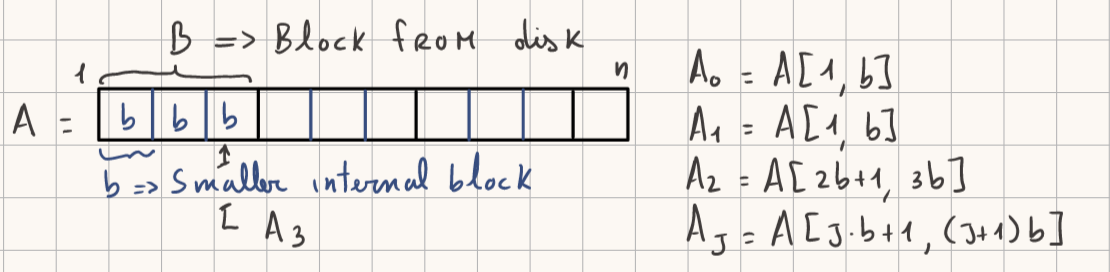 B => Block from disk
1 n
A = b b b
b => smaller internal block
[ A3
A0 = A[1, b]
A1 = A[1, b]
A2 = A[2b+1, 3b]
AJ = A[J·b+1, (J+1)b]